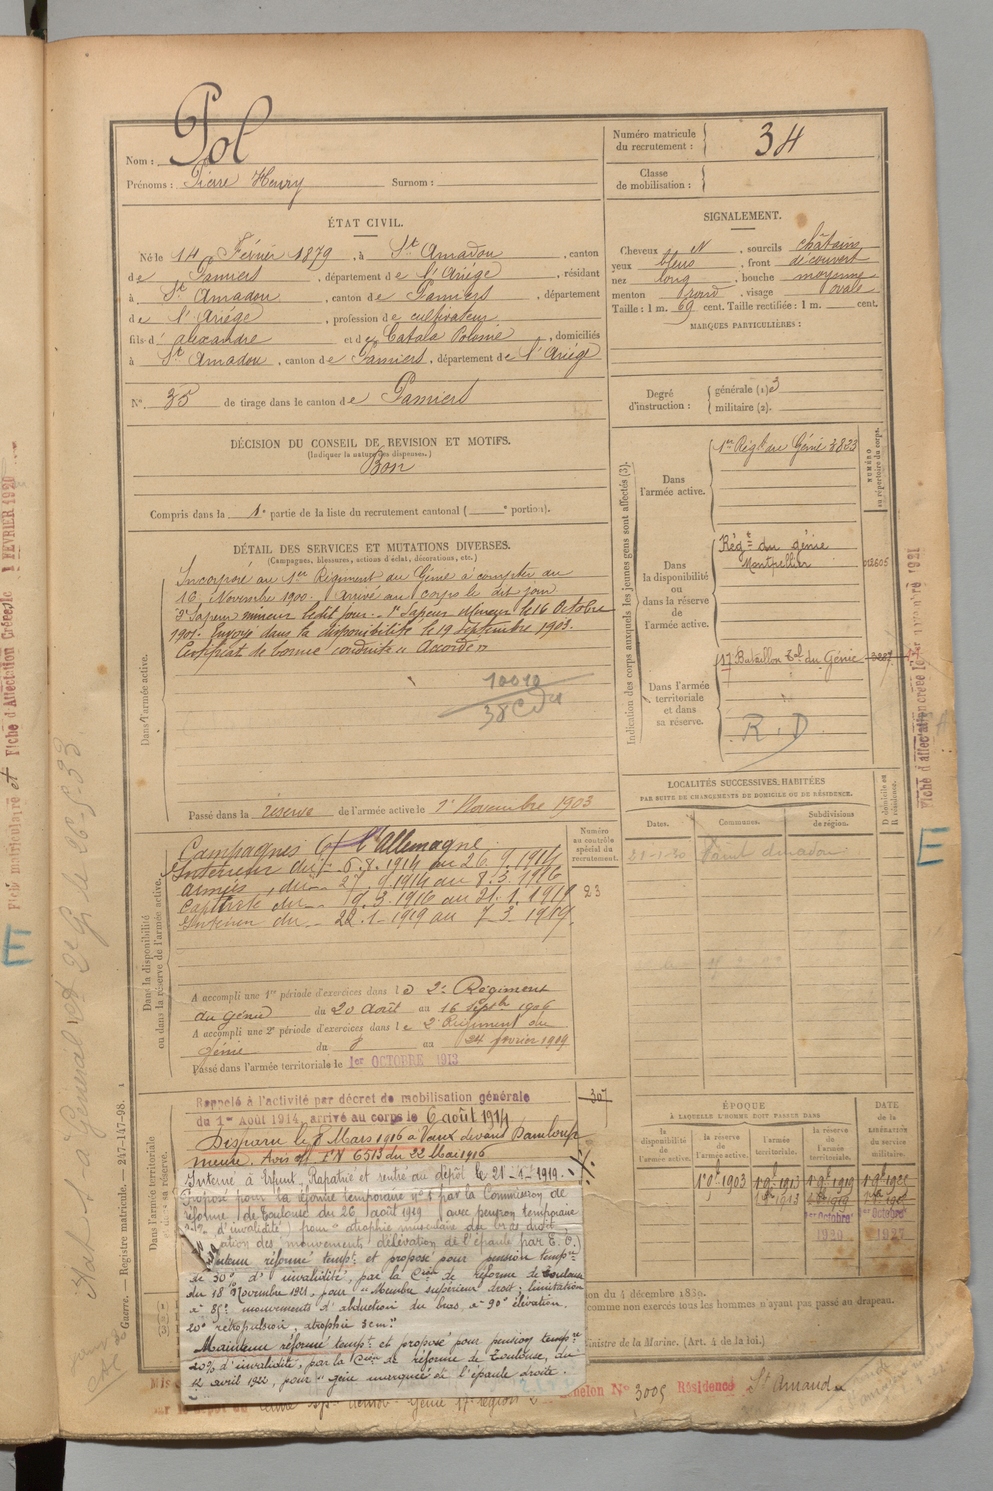 Nom : Pol
Prénoms : Pierre Henry Surnom :
Numéro matricule
du recrutement : 34
Classe
de mobilisation :
ÉTAT CIVIL.
Né le 14 Février 1879, à St Amadou, canton
de Pamiers, département de l'Ariège, résidant
à St Amadou, canton de Pamiers, département
de l'Ariège, profession de cultivateur
fils d'alexandre et de Catala Polonie, domiciliés
à St Amadou, canton de Pamiers, département de l'Ariège
N° 35 de tirage dans le canton de Pamiers
SIGNALEMENT.
Cheveux N, sourcils châtains
yeux bleus, front découvert
nez long, bouche moyenne
menton rond, visage ovale
Taille : 1 m. 69 cent. Taille rectifiée : 1 m. cent.
MARQUES PARTICULIÈRES :
Degré
d'instruction :
générale (1) 3
militaire (2).
DÉCISION DU CONSEIL DE REVISION ET MOTIFS.
(Indiquer la nature des dispenses.)
Bon
Compris dans la 1e partie de la liste du recrutement cantonal ( e portion).
DÉTAIL DES SERVICES ET MUTATIONS DIVERSES.
(Campagnes, blessures, actions d'éclat, décorations, etc.)
Dans l'armée active.
Incorporé au 1er Régiment du Génie à compter du
16 Novembre 1900. arrivé au corps le dit jour
2e Sapeur mineur ledit jour. 1er Sapeur mineur le 16 Octobre
1901. Envoyé dans la disponibilité le 19 Septembre 1903.
Certificat de bonne conduite « Accordé »
10010
38
Passé dans la réserve de l'armée active le 1er Novembre 1903
Indication des corps auxquels les jeunes gens sont affectés (3).
NUMÉRO
au répertoire du corps.
Dans
l'armée active.
1er Régt du Génie 3823
Dans
la disponibilité
ou
dans la réserve
de
l'armée active.
Régt du génie
Montpellier
012605
Dans l'armée
territoriale
et dans
sa réserve.
17 Bataillon Tal du Génie
R.D
LOCALITÉS SUCCESSIVES HABITÉES
PAR SUITE DE CHANGEMENTS DE DOMICILE OU DE RÉSIDENCE.
Dates. Communes. Subdivisions
de région. D domicile ou
R résidence.
Saint amadou
Dans la disponibilité
ou dans la réserve de l'armée active.
Numéro
au contrôle
spécial du
recrutement.
23
Campagnes Ct l'Allemagne
Intérieur du 6.8.1914 au 26.9.1914
armées, du 27.9.1914 au 8.3.1916
Captivité du 9.3.1916 au 21.1.1919
Intérieur du 22.1.1919 au 7.3.1919
A accompli une 1re période d'exercices dans le 2e Régiment
du génie du 20 Août au 16 Septbre 1906
A accompli une 2e période d'exercices dans le 2e Régiment du
génie du 8 au 24 février 1909
Passé dans l'armée territoriale le 1er OCTOBRE 1913
Dans l'armée territoriale
Rappelé à l'activité par décret de mobilisation générale
du 1er Août 1914, arrivé au corps le 6 août 1914
307
Disparu le 8 Mars 1916 à Vaux devant Damloup
meuse. Avis off. L'N 6513 du 22 Mai 1916
Interné à Erfurt, Rapatrié et rentré au dépôt le 21-1-1919.
Proposé pour la réforme temporaire n° 1 par la Commission de
réforme de Toulouse du 26 août 1919 avec pension temporaire
d'invalidité pour atrophie musculaire du bras droit
des mouvements d'élévation de l'épaule par E. O.)
Maintenu réformé tempt et proposé pour pension tempre
de 30% d'invalidité, par la Cion de réforme de Toulouse
du 18 Novembre 1921, pour "Membre supérieur droit ; limitation
à 85° mouvements d'abduction du bras, à 90° élévation,
20° rétropulsion, atrophie 3cm"
Maintenu réformé tempt et proposé pour pension tempre
20% d'invalidité, par la Cion de réforme de Toulouse, du
12 avril 1922, pour "gêne marquée de l'épaule droite.
ÉPOQUE
À LAQUELLE L'HOMME DOIT PASSER DANS
DATE
de la
LIBÉRATION
du service
militaire.
la
disponibilité
de
l'armée active.
la réserve
de
l'armée active.
l'armée
territoriale.
la réserve
de
l'armée
territoriale.
1er 9bre 1903 1er 9bre 1913 1er 9bre 1919
1er Octobre
ion du 4 décembre 1889.
comme non exercés tous les hommes n'ayant pas passé au drapeau.
inistre de la Marine. (Art. 4 de la loi.)
Echelon N° 3005 Résidence St Amand
Guerre. — Registre matricule. — 247-147-98.
Fiche matriculaire et Fiche d'Affectation Créées le 1 FÉVRIER
Fiche d'affectation créée le
E
E